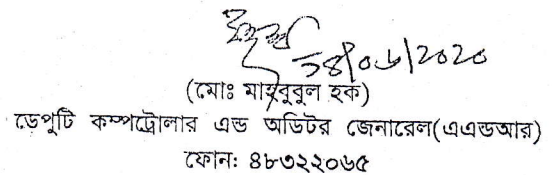 ১৪/০৬/২০২০
(মোঃ মাহবুবুল হক)
ডেপুটি কম্পট্রোলার এন্ড অডিটর জেনারেল(এএন্ডআর)
ফোন: ৪৮৩২২০৬৫